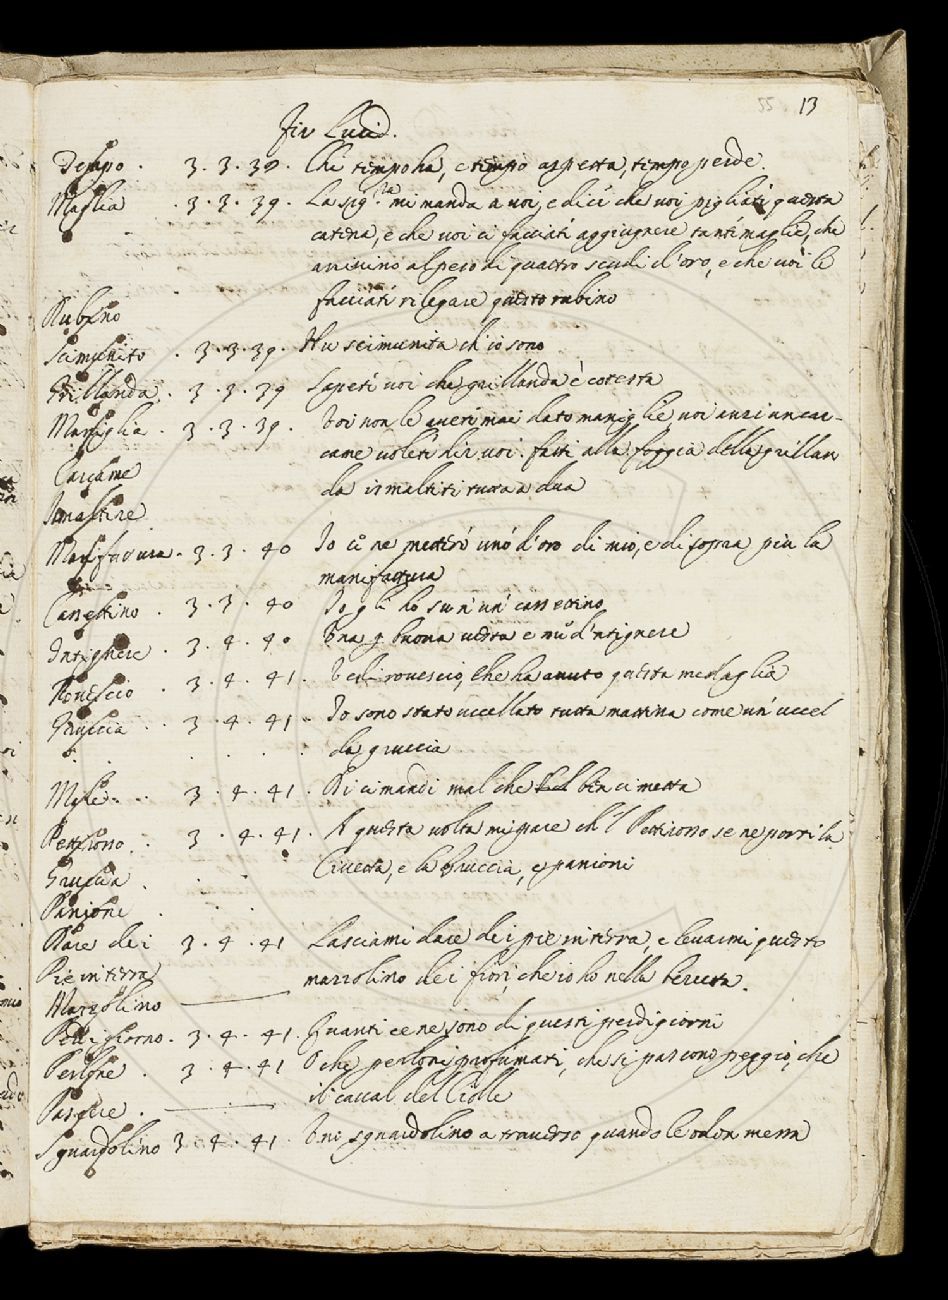 55 13
Fir Lucid.
Tempo . 3. 3. 39. Chi tempo ha, e tempo aspetta, tempo perde.
Maglia . 3. 3. 39. La sig.ra mi manda a voi, e dice che voi pigliate questa
catena, e che voi ci facciate aggiugnere tante maglie, che
arrivino al peso di quattro scudi d'oro, e che voi le
Rubino facciate rilegare questo rubino
Scimunito . 3. 3. 39. Hu scimunita ch'io sono
Grillanda . 3. 3. 39 Sapete voi che grillanda è cotesta
Maniglia . 3. 3. 39. Voi non le avete mai dato maniglie voi anzi un car-
Carcame came volete dir voi. fatti alla foggia della grillan
Smaltire da ismaltiti tutta a dua
Manifattura . 3. 3. 40 Io ci ne metterò uno d'oro di mio, e di sopra più la
manifattura
Cassettino . 3. 3. 40 Io gli ho su n'un cassettino
Intignere . 3. 4. 40 Una buona vesta e d'ntignere
Rovescio . 3. 4. 41. Vedi rovescio, che ha avuto questa medaglia
Gruccia . 3. 4. 41. Io sono stato uccellato tutta mattina come un' uccel
da gruccia
Male . . . 3. 4. 41. Di ci mandi mal che ben ci metta
Pettirosso . . 3. 4. 41. A questa volta mi pare ch'l Pettirosso se ne porti la
Gruccia . Civetta, e la Gruccia, e panioni
Panione .
Dare dei 3. 4. 41 Lasciami dare dei piè in terra, e levarmi questo
Piè in terra mazzolino dei fiori, che io ho nella berretta.
Mazzolino
Perdigiorno . 3. 4. 41. Quanti ce ne sono di questi perdigiorni
Perlone . 3. 4. 41 O che perloni profumati, che si pascono peggio, che
Pascere . il caval del Ciolle
Sguardolino 3. 4. 41. Uni sguardolino a traverso quando le odon messa